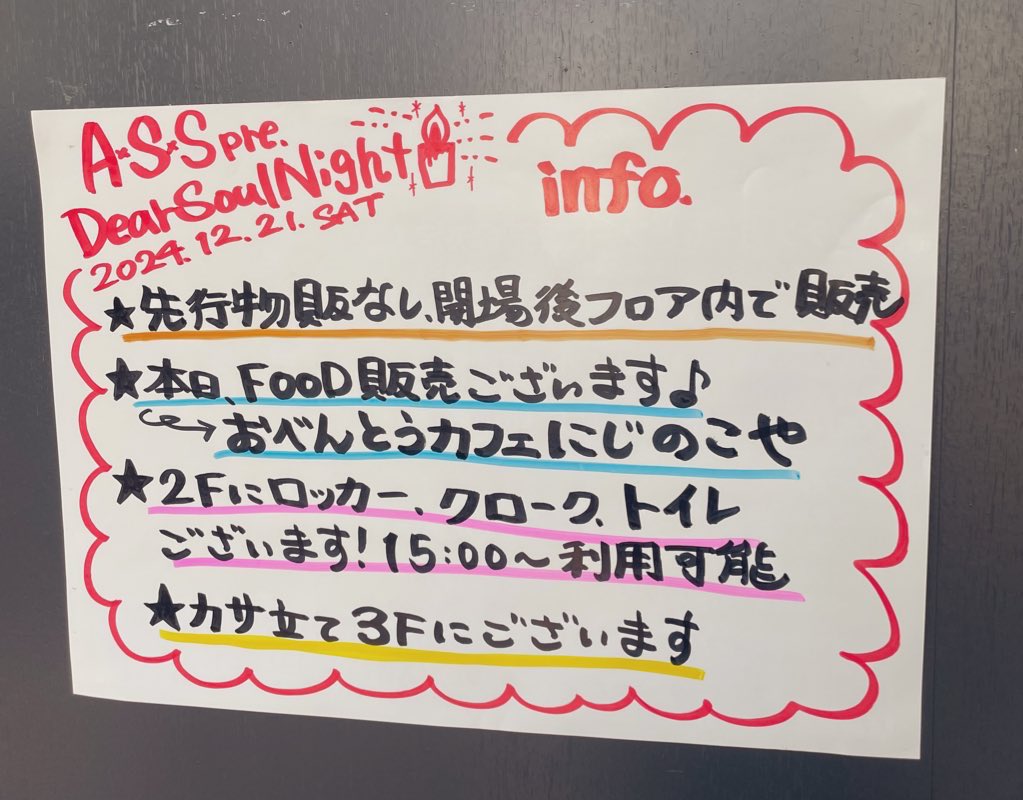 A・S・S pre.
Dear Soul Night
2024.12.21. SAT
info.
★先行物販なし、開場後フロア内で販売
★本日、FOOD販売ございます♪
↪おべんとうカフェにじのこや
★2Fにロッカー、クローク、トイレ
ございます!15:00〜利用可能
★カサ立て3Fにございます